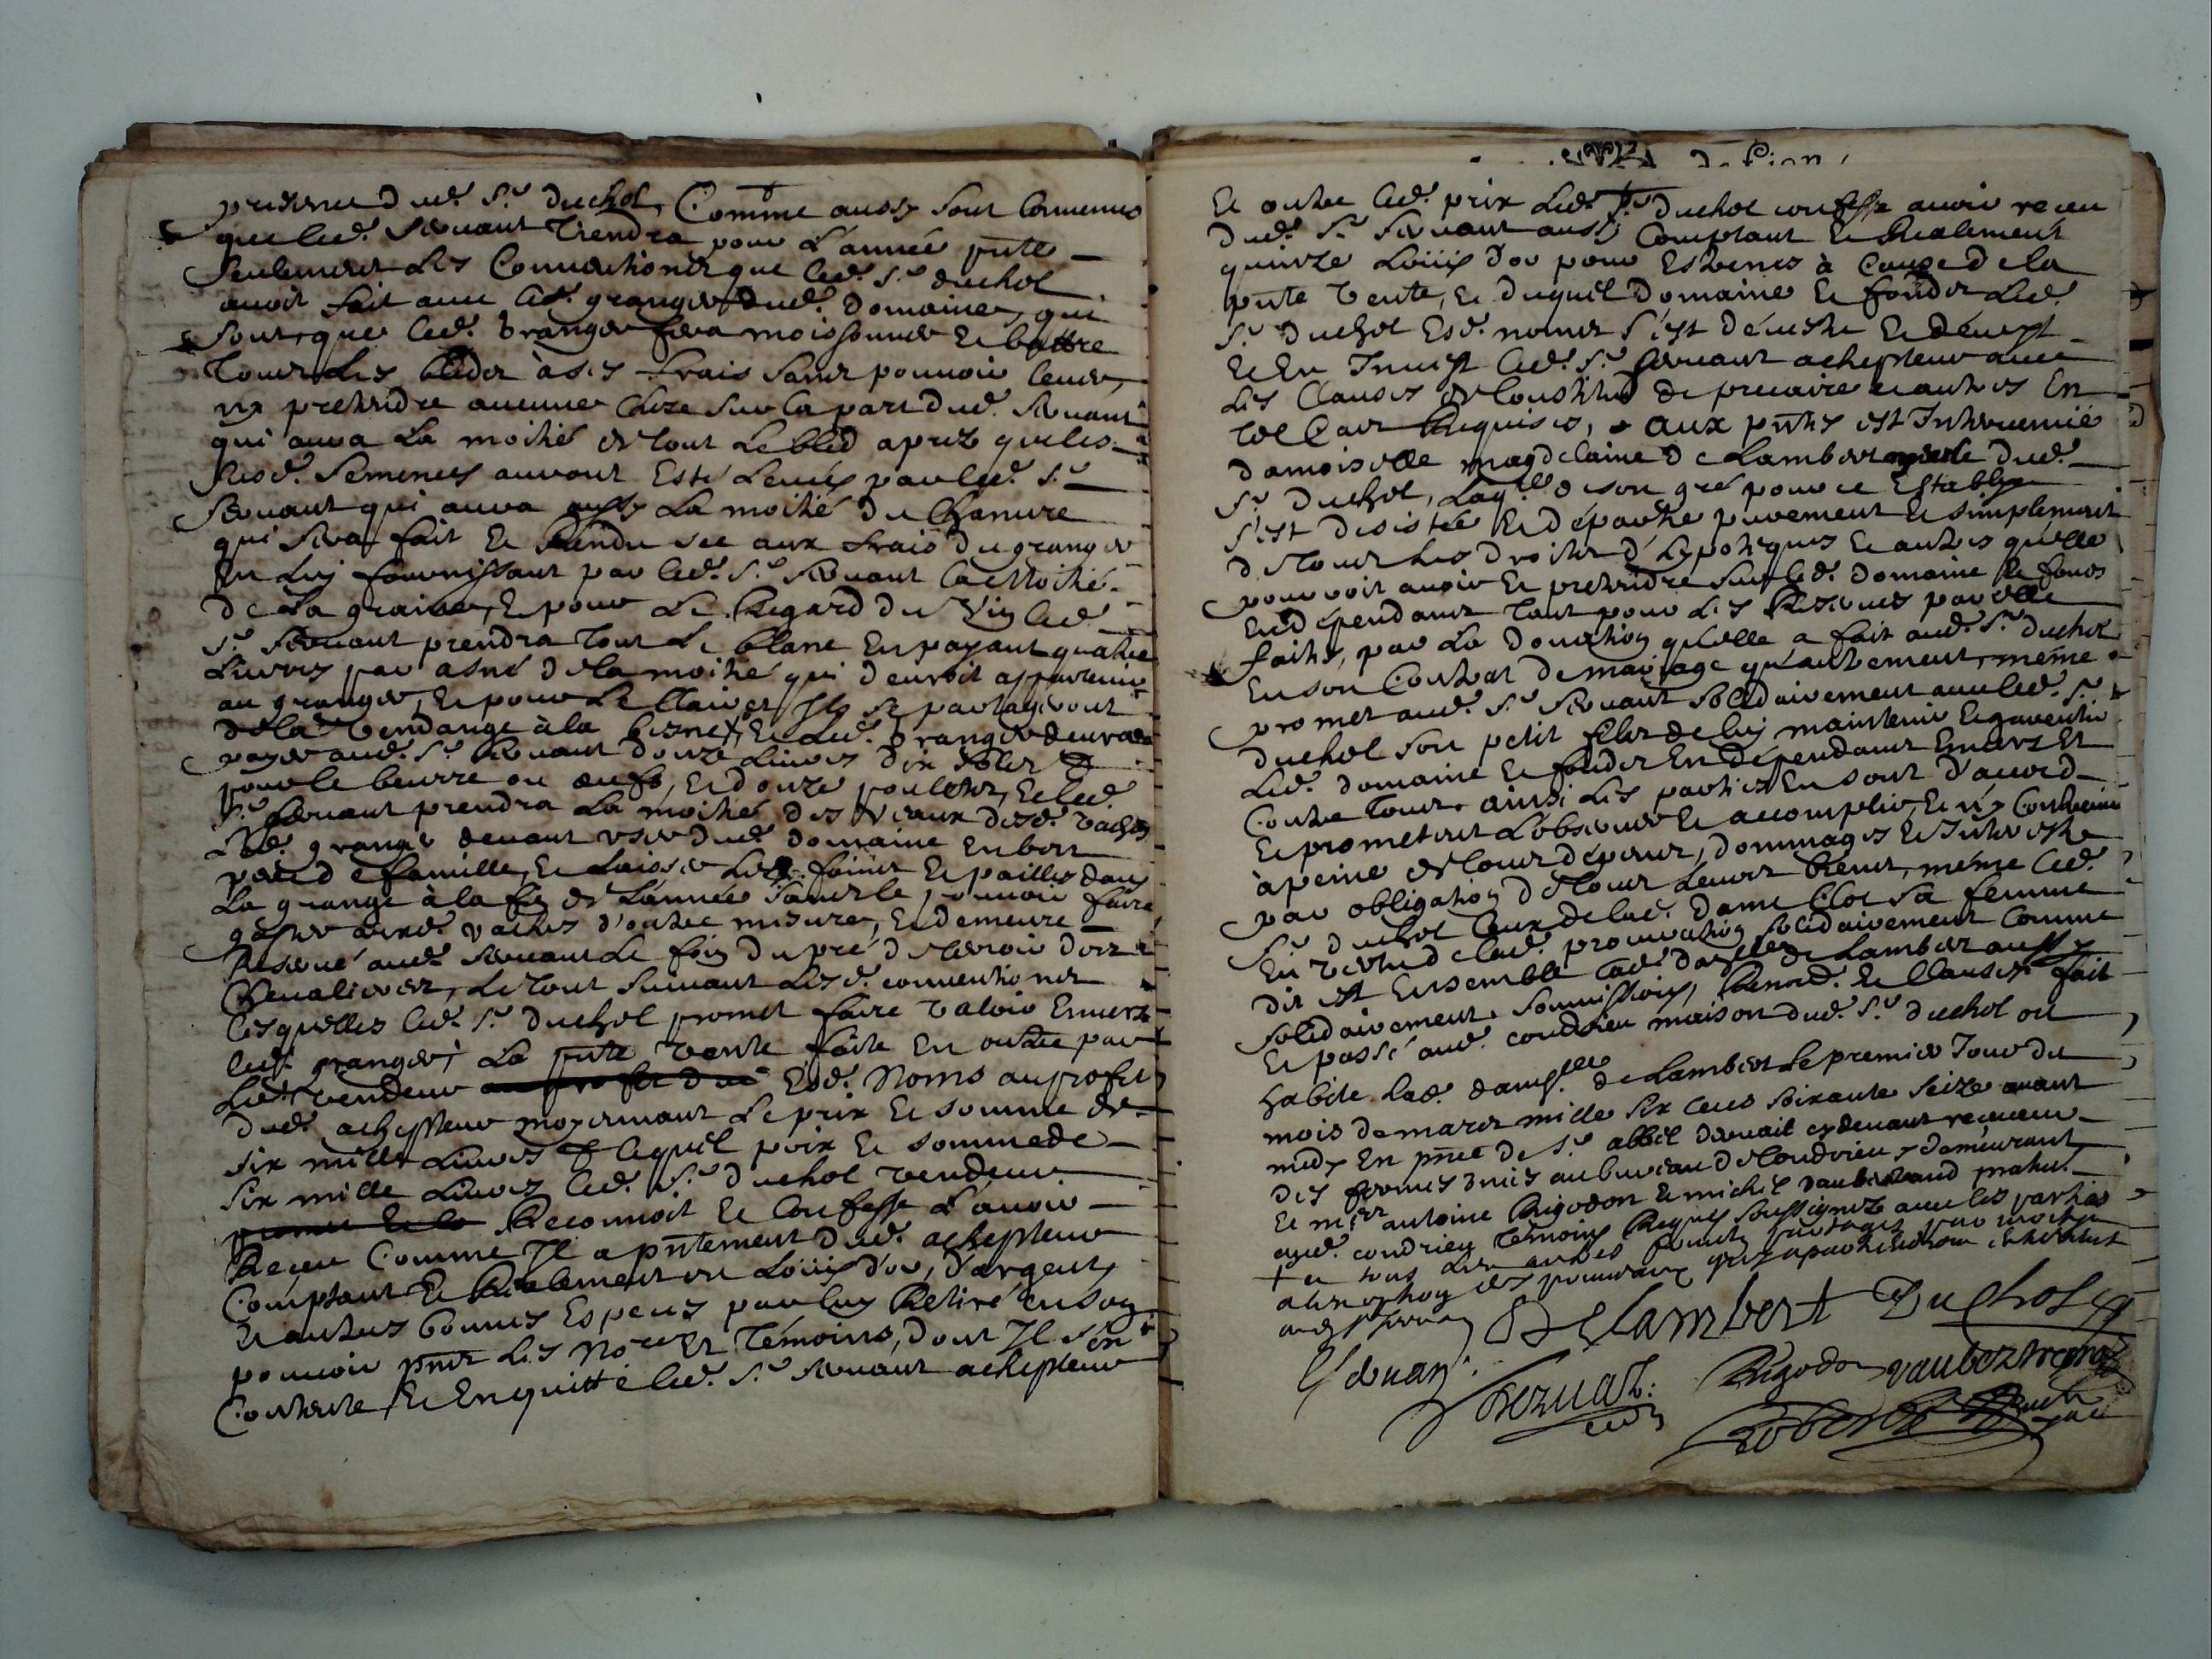 presence dud. Sr. duchol, Comme aussy sont Convenus
que led. Servant Tiendra pour L'année pnte
seulement Les Conventions que led. Sr. duchol
avoit fait avec led. granger dud. Domaine, qui
sont, que led. Granger fera moissonner Et battre
Tous Les bledz à ses frais sans pouvoir lever
ny pretendre aucune choze sur la part dud. Servant
qui aura La moitié de tout Le bled aprez que les
susd. Semences auront Esté Levées par led. Sr.
Servant qui aura aussy La moitié du Chanvre
qui sera fait Et Rendu sec aux frais du granger
En Luy fournissant par led. Sr. Servant la Moitié
De La graine, Et pour Le Regard du Vin led.
Sr. Servant prendra Tout Le blanc En payant quatre
Livres par asné de la moitié qui devroit appartenir
au granger, Et pour Le Clairet Ils Se partageront
de la Vendange à la benne, Et Led. Granger devra
payer aud. Sr. Servant douze Livres dix solz
pour le beurre ou oeufs, Et douze poulletz, Et led.
Sr. Servant prendra La moitié des Veaux desd. Vaches
Led. granger devant user dud. domaine En bon
pere de famille, Et Laisser Les foins Et pailles dans
La grange à la fin de L'année sans le pouvoir faire
gaster auxd. vaches d'outre mesure, Et demeure
Reservé aud. Servant Le foin du pré
Chevalieres, Le tout suivant Lesd. conventions
lesquelles led. Sr. Duchol promet faire valoir Envers
led. granger; La pnte Vente faite En outre par
Led. Vendeur au profit dud. Esd. Noms au profit
Dud. achepteur moyennant Le prix Et somme de
six mille Livres lequel prix Et somme de
six mille Livres led. Sr. Duchol vendeur
promet Et co Reconnoit Et Confesse L'avoir
Receu Comme Il a pntement dud. achepteur
Comptant Et Reelement en Loüis d'or, d'argent,
Et autres bonnes Especes par luy Retiré En son
pouvoir pnts Les Nores Et Témoins, dont Il s'en
Contente, Et En quitte led. Sr. Servant achepteur
Et outre led. prix Led. Sr. Duchol confesse avoir receu
Dud. Sr. Servant aussy Comptant Et Realement
quinze Loüis d'or pour Estrenes à Cause de la
pnte Vente, Et duquel Domaine Et fondz Led.
Sr. Duchol Esd. noms s'est dévestu Et dévest
Et En Invest led. Sr. Servant achepteur avec
Les Clauses de Constitut de precaire et autres En
tel Cas Requises, aux pntes est Intervenüe
Damoiselle magdelaine de Lambert dud.
Sr. Duchol, Laqlle de son gré pour ce Establye
s'est desistée Et départie purement Et simplement
de tous Les droits d'hypoteques Et autres qu'elle
pouvoit avoir Et pretendre sur led. Domaine Et fonds
En dépendants Tant pour Les Reserves par elle
faites, par La Donation qu'elle a fait aud. Sr. Duchol
En son Contrat de mariage qu'autrement, même
promet aud. Sr. Servant solidairement avec led. Sr.
Duchol son petit filz de luy maintenir Et garentir
Led. domaine Et fondz En dépendants Envers Et
Contre Tous. ainsi Les parties En sont D'accord
Et promettent L'observer Et accomplir, Et n'y Contrevenir
à peine de tous dépens, dommages Et Interestz
par obligation de tous Leurs biens, même led.
Sr. Duchol Ceux de lad. dame Clot sa femme
En vertu de lad. procuration solidairement Comme
Dit est Ensemble lad. daslle de Lambert aussy
solidairement. Soumissions, Renond. Et Clauses. fait
Et passé aud. condrieu maison dud. Sr. Duchol où
habite lad. damlle de Lambert Le premier Jour du
mois de mars mille six Cens soixante seize avant
midy En pnce de Sr. abbel Dervail cydevant receveur
des fermes unies au bureau de Condrieu y demeurant
Et mres antoine Rigodon Et michel Vaubertrand pratins.
aud. condrieu Témoins Requis soussignez avec les parties
DeLambert Duchol
Servant
Servant Rigodon Vaubertrand